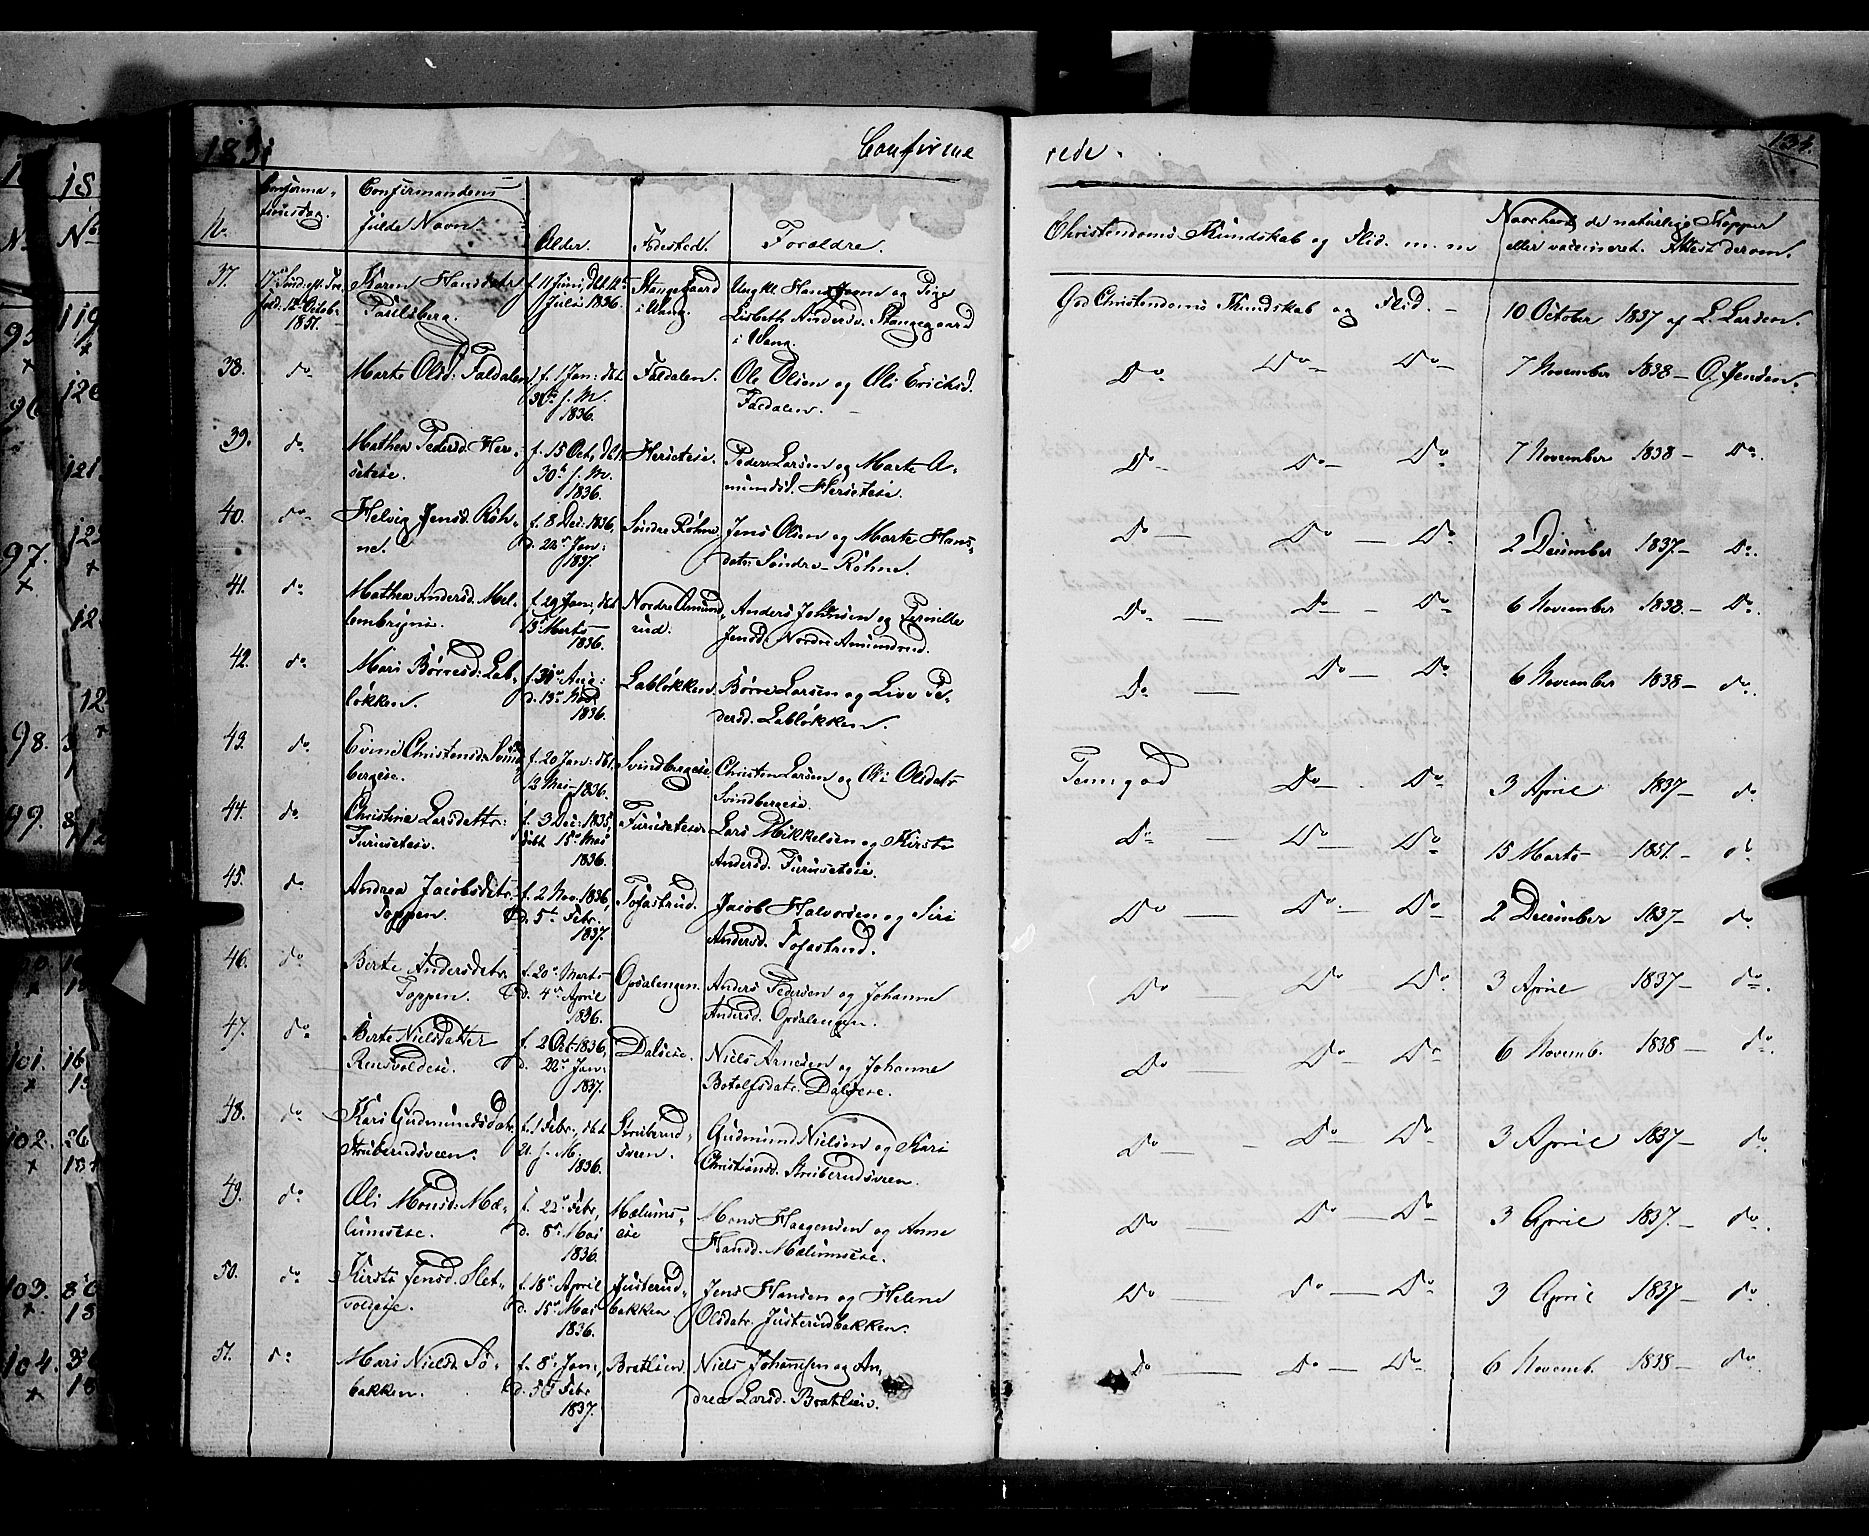 1851 Confirmerede. 131.
No. Confirmationsdag. Confirmandens fulde Navn. Alder. Fødested. Forældre. Christendoms Kundskab og Flid. m. m. Naar havt de naturlige Kopper eller vaccineret. Attest derom.
37. 17de Sønd. eft. Tref. 12te Octobr. 1851. Karen Hansdatr. f. 11 Juni, dbt 12te Juli 1836. Stangegaard i Wang. Ungkl. Hans og Pige Lisbeth Andersd. Stangegaard i Vang. God Christendoms Kundskab og Flid. — 10 October 1837 af L. Larsen.
38. do Marte Olsd: Faldalen f. 1 Jan: dbt 31te s. M. 1836. Faldalen. Ole Olsen og Oli Ericksd. Faldalen. — Do — Do Do 7 November 1838 — O. Jensen.
39. do Mathea Pedersd. Herseteie. f. 15 Oct, dbt 30te s. M. 1836. Herseteie. Peder Larsen og Marte Amundsd. Herseteie. Do — Do — Do 7 November 1838 — Do.
40. do Helvig Jensd. Røhne. f. 8 Dec: 1836, d. 22de Jan: 1837. Søndre Røhne Jens Olsen og Marte Hansdatr. Søndre Røhne. Do — Do — Do 2 December 1837 — Do.
41. do Mathea Andersd. Mellembryneie. f. 29 Jan:, dbt 13de Marts 1836. Nordre Amundrud. Anders Johnsen og Pernille Jensd. Nordre Amundrud. Do — Do — Do 6 November 1838 — Do.
42. do Mari Børresd: Labløkken. f. 31te Aug: d. 13de Nov. 1836. Labløkken. Børre Larsen og Live Pedersd. Labløkken. Do — Do — Do 6 November 1838 — do.
43. do Evene Christensd. Svindbergeie. f. 20 Jan: dbt. 12 Mai 1836. Svindbergeie Christen Larsen og Oli Olsdatr Svindbergeie. Temgod Do — Do 3 April 1837 — do
44. do Christine Larsdattr: Furuseteie. f. 3 Dec: 1835, døbt 15de Mai 1836. Furuseteie. Lars Mikkelsen og Kirsti Andersd. Furuseteie. Do — Do — Do 15 Marts 1851. — do.
45. do Andrea Jacobsdatr. Toppen. f. 2 Nov. 1836, d. 5te Febr. 1837. Tofastrud. Jacob Halvorsen og Siri Andersd. Tofastrud. Do — Do — Do 2 December 1837 — do
46. do Berte Andersdatr. Toppen. f. 20de Marts d. 4de April 1836. Opsalengen. Anders Pedersen og Johanne Andersd. Opsalengen. Do — Do Do 3 April 1837 — do.
47. do Berte Nielsdatter Rensvoldeie. f. 2 Oct. 1836, d. 22de Jan: 1837. Dalseie. Niels Arnesen og Johanne Botolfsdatr. Dalseie. Do — Do — Do 6 Novemb. 1838 — do.
48. do Kari Gudmundsdatr. Struberudsveen. f. 1 Febr., dbt 21. s. M. 1836. Struberudsveen. Gudmund Nielsen og Kari Christiansd. Struberudsveen. Do — Do — Do 3 April 1837 — do
49. do Oli Monsd: Mælumseie. f. 22de Febr, d. 8de Mai 1836. Mælumseie Mons Haagensen og Anne Hansd. Mælumseie. Do — Do — Do 3 April 1837. — do.
50. do Kirsti Jensd. Sletvoldeie. f. 18de April d. 15de Mai 1836. Justerudbakken Jens Hansen og Helene Olsdatr. Justerudbakken. Do — Do — Do 3 April 1837 — do
51. do Mari Nielsd: Søbakken. f. 8de Jan:, d. 5te Febr. 1837. Bratlien. Niels Johannesen og Andrea Larsd. Bratlieie. Do Do — Do 6 Novemb. 1838 — do